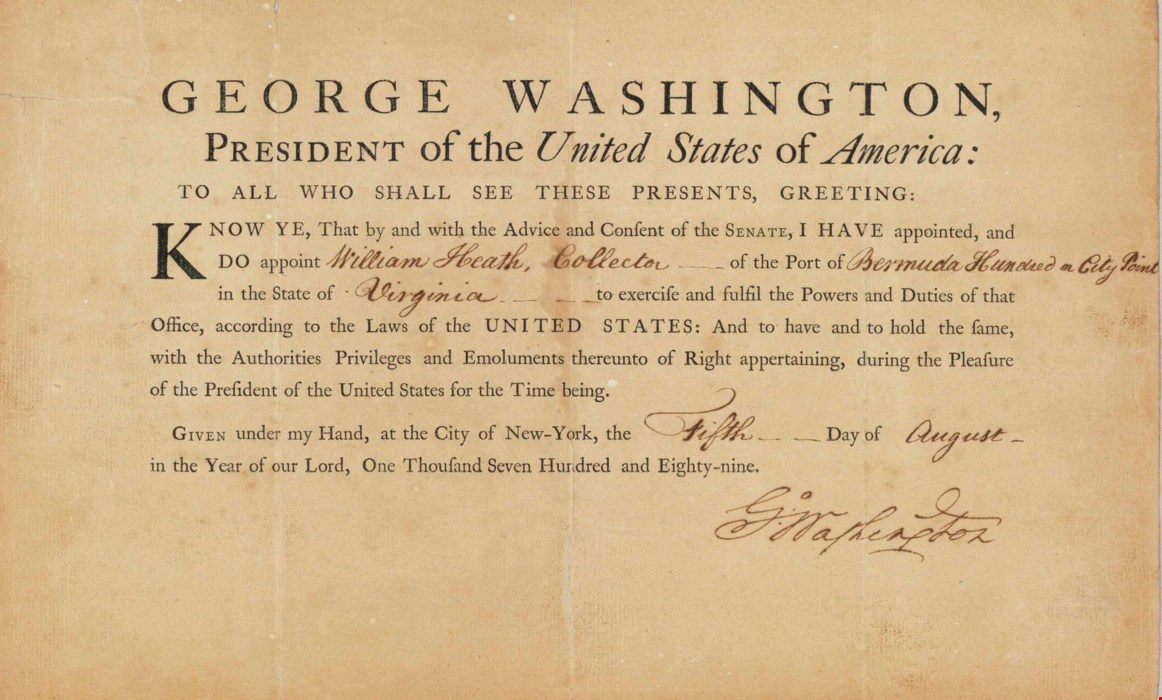 GEORGE WASHINGTON,
PRESIDENT of the United States of America:
TO ALL WHO SHALL SEE THESE PRESENTS, GREETING:
KNOW YE, That by and with the Advice and Conſent of the SENATE, I HAVE appointed, and
DO appoint William Heath, Collector — of the Port of Bermuda Hundred or City Point
in the State of Virginia — — — to exerciſe and fulfil the Powers and Duties of that
Office, according to the Laws of the UNITED STATES: And to have and to hold the ſame,
with the Authorities Privileges and Emoluments thereunto of Right appertaining, during the Pleaſure
of the Preſident of the United States for the Time being.
GIVEN under my Hand, at the City of New-York, the Fifth — — Day of August —
in the Year of our Lord, One Thouſand Seven Hundred and Eighty-nine.
Go. Washington